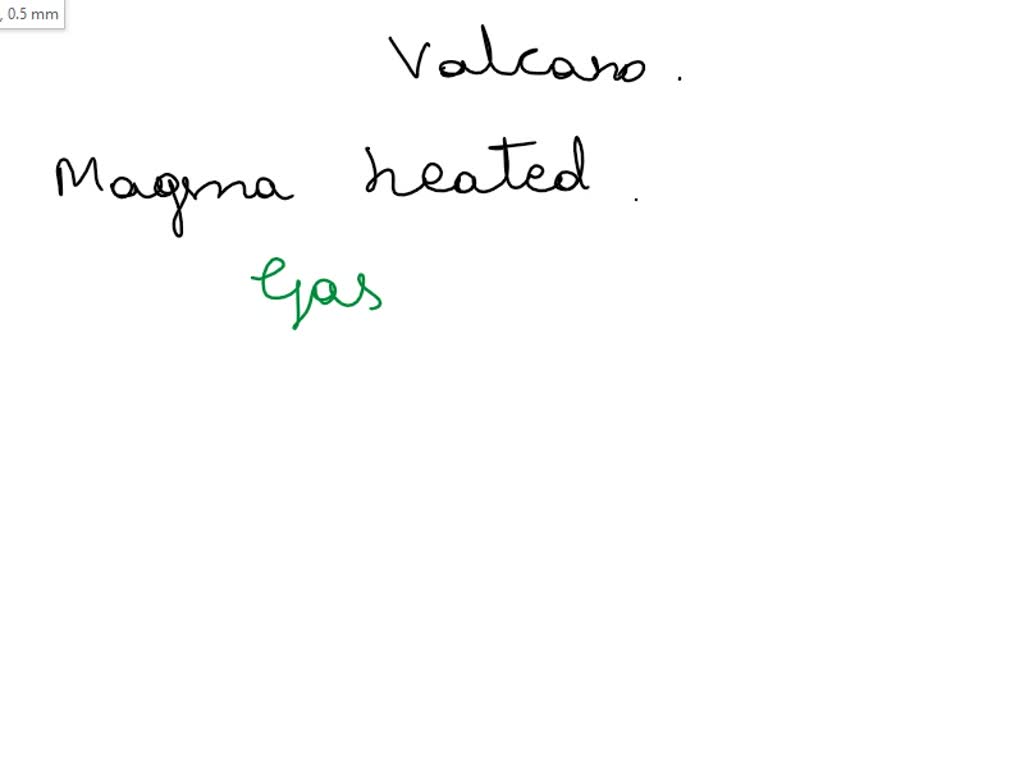 , 0.5 mm
Valcano.
Magma heated.
Gas